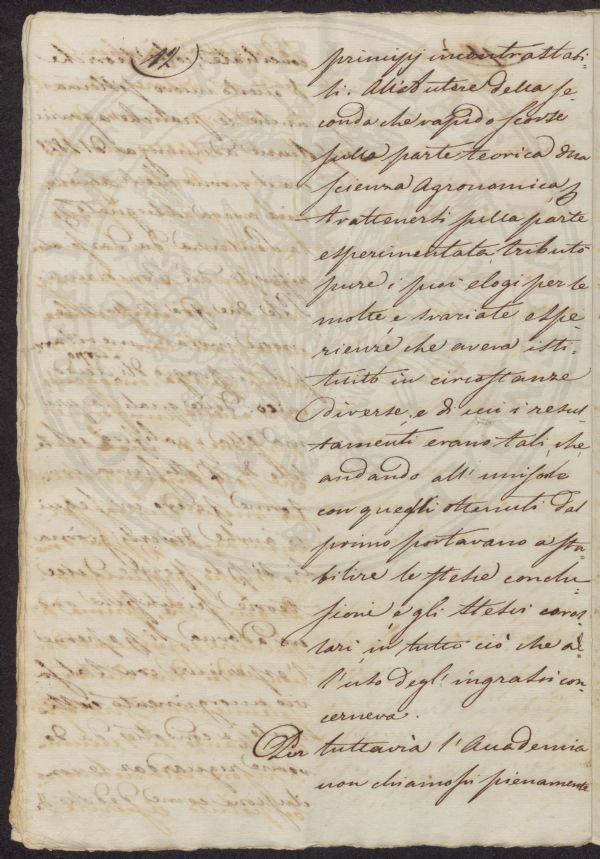 42
principj incontrastabi-
li. All'Autore della se-
conda che rapido scorse
sulla parte teorica della
scienza Agronomica, p
trattenersi sulla parte
esperimentata, tributò
pure i suoi elogi per le
molte, e svariate espe-
rienze, che aveva isti-
tuito in circostanze
diverse, e di cui i resul-
tamenti erano tali, che
andando all'unisolo
con quegli ottenuti dal
primo portavano a sta-
bilire le stesse conclu-
sioni e gli stessi corol-
lari, in tutto ciò che al-
l'uso degl'ingrassi con-
cerneva.
Pur tuttavia l'Accademia
non chiamossi pienamente